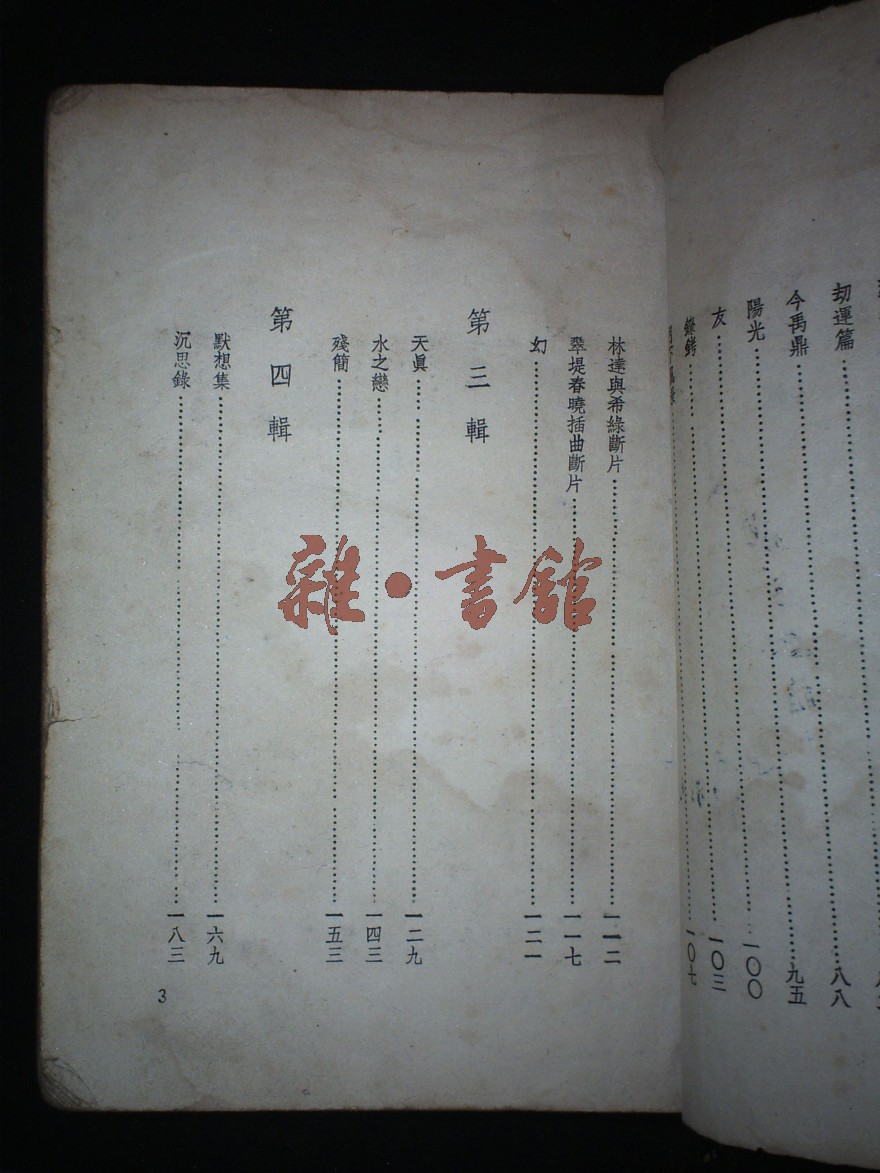 劫運篇……八八
今禹鼎……九五
陽光……一〇〇
友……一〇三
鋒鍔……一〇七
林達與希綠斷片……一一二
翠堤春曉插曲斷片……一一七
幻……一二一
第三輯
天眞……一二九
水之戀……一四三
殘簡……一五三
第四輯
默想集……一六九
沉思錄……一八三
3
雜·書館